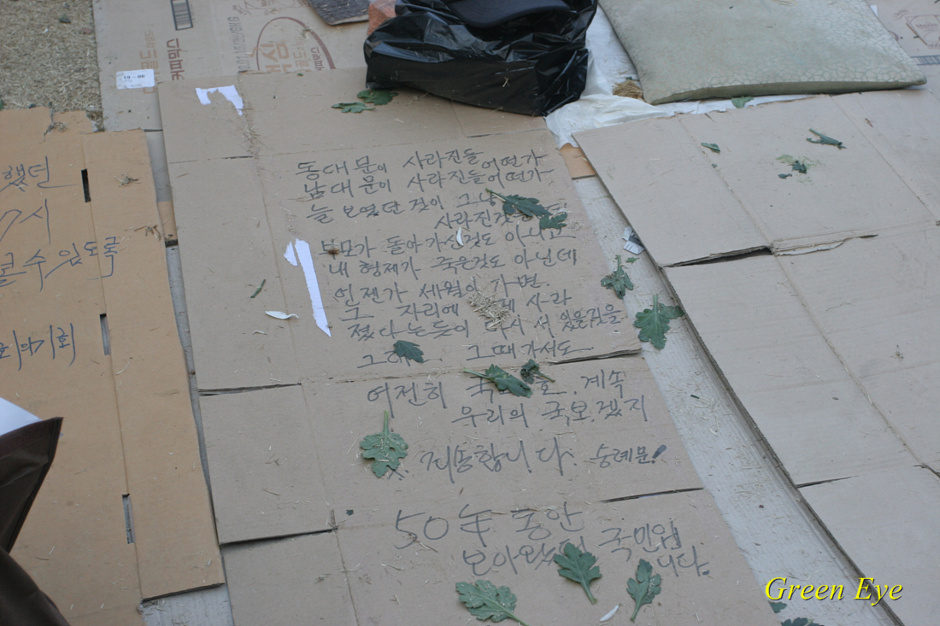 동대문이 사라진들 어떤가
남대문이 사라진들 어떤가
늘 보였던 것이 그냥
사라진것
부모가 돌아가신것도 아니고
내 형제가 죽은것도 아닌데
언젠가 세월이 가면.
그 자리에 사라
졌다는듯이 다시 서 있을것을
그때가서도
여전히 계속
우리의 국보.겠지
죄송합니.다. 숭례문!
50年 동안
보아왔던 국민입
니다.
했던
7시
볼수있도록
기회
커피믹스
Green Eye